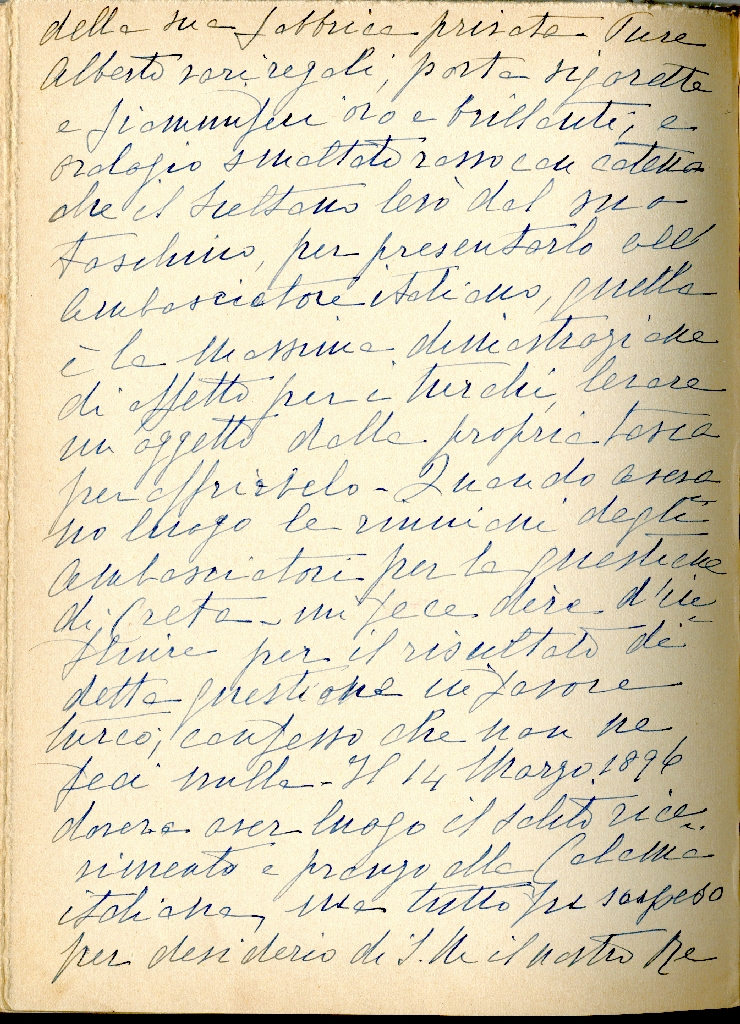 della sua fabbrica privata. Pure
Alberto vari regali, porta sigarette
e fiammiferi oro e brillanti, e
orologio smaltato rosso con catena
che il Sultano levò dal suo
taschino, per presentarlo all'
Ambasciatore italiano, quella
è la massima dimostrazione
di affetto per i turchi, levare
un oggetto dalla propria tasca
per offrirvelo - Quando aveva
no luogo le riunioni degli
Ambasciatori per la questione
di Creta - mi fece dire d'in
fluire per il risultato di
detta questione in favore
turco; confesso che non ne
feci nulla - Il 14 Marzo 1896
doveva aver luogo il solito rice
vimento e pranzo alla Colonia
italiana, ma tutto fu sospeso
per desiderio di S. M il nostro Re